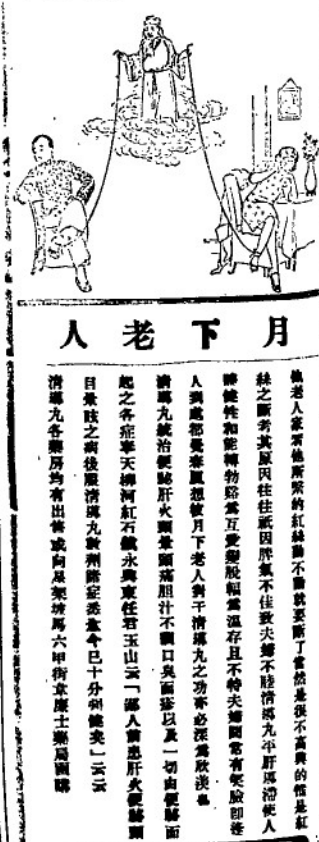 月下老人
他老人家看他所繫的紅絲動不動就要斷了當然是很不高興的惟是紅
絲之斷考其原因往往祇因脾氣不佳致夫婦不睦清導丸平肝導滯使人
健性和能轉勃谿為互愛變脫輻為溫存且不特夫婦間常有笑臉即逢
人到處都覺春風想彼月下老人對于清導丸之功亦必深為欣羨也
清導丸統治便祕肝火頭暈頭痛胆汁不調口臭面疹以及一切由便祕而
起之各症奉天柳河紅石鎮永興東任君玉山云「鄙人前患肝火便祕頭
目暈眩之病後服清導丸數瓶諸症悉愈今已十分健矣」云云
清導丸各藥房均有出售或向星架坡馬六甲街韋廉士藥局函購